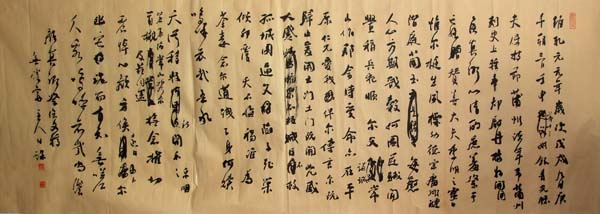 維乾元元年歲次戊戌九月庚
午朔三日壬申第十三叔銀青光祿
夫使持節蒲州諸軍事蒲州
刺史上輕車都尉丹楊縣開國
侯真卿以清酌庶羞祭于
亡姪贈贊善大夫季明之靈曰
惟爾挺生夙標幼德宗廟瑚璉
階庭蘭玉每慰
人心方期戩穀何圖逆賊閒
釁稱兵犯順爾父竭誠常
山作郡余時受命亦在平
原仁兄愛我俾爾傳言爾既
歸止爰開土門土門既開兇威
大蹙賊臣不救
孤城圍逼父陷子死巢
傾卵覆天不悔禍誰為
荼毒念爾遘殘百身何贖
嗚呼哀哉吾承
天澤移牧河關泉明
比者再陷常山攜爾
首櫬及茲同還撫念摧切
震悼心顏方俟遠日卜爾
幽宅魂而有知無嗟
久客嗚呼哀哉尚饗
顏真卿祭侄文稿
主人日課